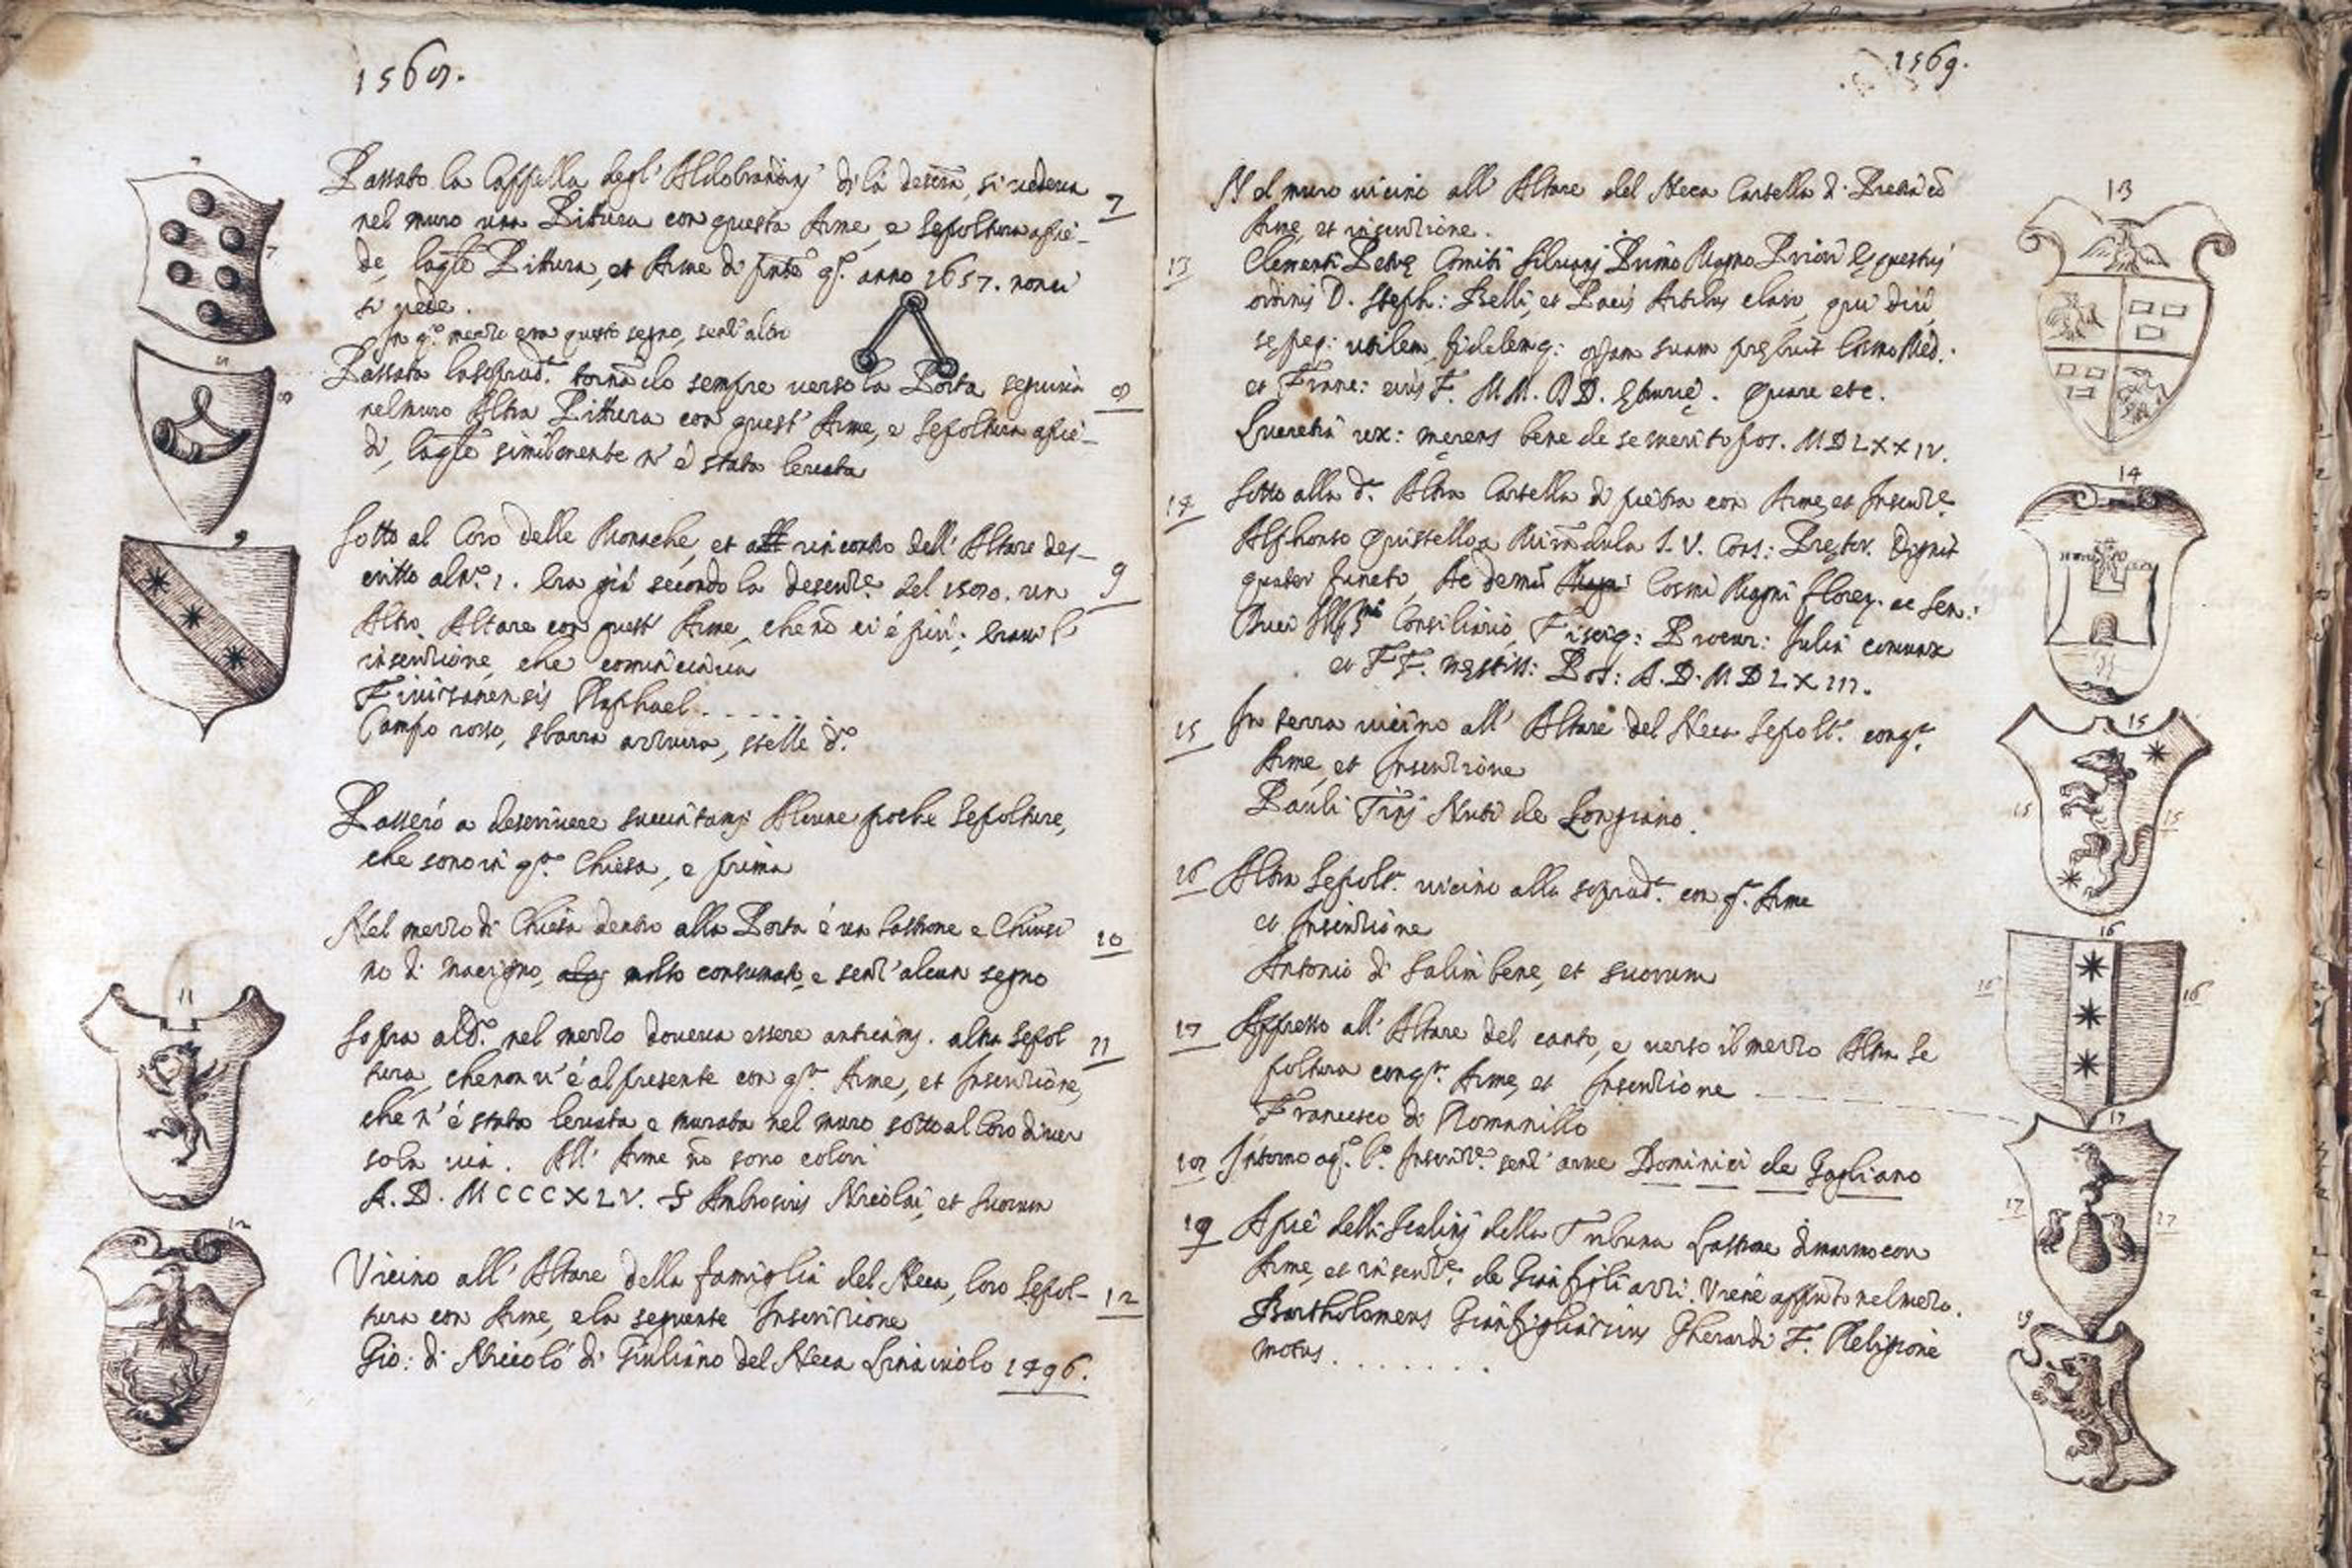 1568.
Passato la Cappella degl' Aldobrandinj di là descrã, si vedeva 7
nel muro una Pittura con questa Arme, e Sepoltura apiè-
de, laqle Pittura, et Arme di pñte qº anno 1657. non vi
si vede.
In qº mezzo era questo segno, senz'altro
Passata lasoprad.ª tornãdo sempre verso la Porta seguiva 8
nelmuro Altra Pittura con quest' Arme, e Sepoltura apiè-
di, laqle similmente n' è stata levata
Sotto al Coro delle Monache, et all rincontro dell' Altare des-
critto alNº. 1. Era già secondo la descrizᵉ del 1580. un 9
Altro Altare con quest' Arme, che nõ vi è più; Eravi l'
inscrizione, che cominciava
Fivizanensis Raphael . . . . . .
Campo rosso, sbarra azzurra, stelle dº.
Passerò a descrivere succintamᵉ Alcune poche Sepolture,
che sono in qª. Chiesa, e prima
Nel mezzo di Chiesa dentro alla Porta è un lastrone e Chiusi 10
no di macigno, molto consumato, e senz'alcun segno
Sopra aldº. nel mezzo doveva essere anticamᵉ. altra Sepol 11
tura, che non v' è al presente con qª. Arme, et Inscrizione,
che n' è stata levata e murata nel muro sotto al Coro di ver
sola via. All' Arme nõ sono colori
A. D. MCCCXLV. S Ambrosius Nicolai, et Suorum
Vicino all' Altare della famiglia del Neca, loro Sepol- 12
tura con Arme, ela seguente Inscrizione
Gio: di Niccolò di Giuliano del Neca Linaiuolo 1496.
7
7
8
8
9
11
12
1569.
Nel muro vicino all' Altare del Neca Cartella di Pietra cõ
Arme, et inscrizione.
13 Clementi Petrę Comiti Silvanj Primo Magno Priori Equestris
ordinis D. Steph: Belli, et Pacis Artibus claro, qui diu,
sępeq: utilem, fidelemq: opam suam prębuit Cosmo Med:
et Franc: eius F. MM. DD. Etrurię. Quare etc.
Lucretia ux: męrens bene de se merito pos. MDLXXIV.
14 Sotto alla dª. Altra Cartella di pietra con Arme, et Inscrizᵉ.
Alphonso Quistello a Mirãdula I. V. Cons: Pręter. Dignit
quater functo, Ac demũ Cosmi Magni Floreⁿ. ac Sen:
Duci Consiliario, Fisciq: Procur: Julia coniunx
et FF. męstiss: Pos: A.D. MDLXIII.
15 In terra vicino all' Altare del Neca Sepoltª. conqª.
Arme, et Inscrizione
Pauli Nuti de Longiano.
16 Altra Sepoltª. vicino alla sopradª. con qª. Arme
et Inscrizione
Antonio di Salimbene, et suorum
17 Appresso all' Altare del canto, e verso il mezzo Altra Se
poltura conqª. Arme, et Inscrizione
Francesco di Romanillo
18 Intorno aqª. Inscrizᵉ. senz' arme Dominici de Gagliano
19 Apiè delli Scalinj della Tribuna Lastrone di marmo con
Arme, et inscrizᵉ. de Gianfigliazzi. Viene appũto nel mezo.
Bartholomeus Gianfigliazius Gherardi F. Religione
motus . . . . . . .
13
14
15
15
15
16
16
16
17
17
17
19